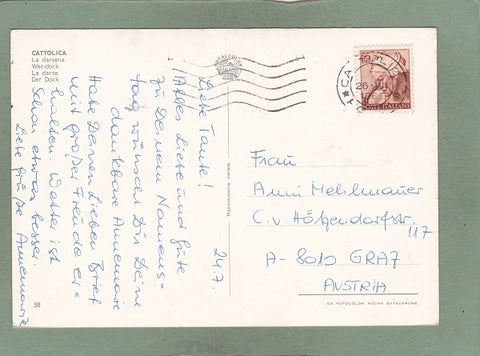 CATTOLICA
La darsena
Wet-dock
La darse
Der Dock
24.7.
Liebe Tante!
Alles Liebe und Gute
zu Deinem Namens-
tag wünscht Dir Deine
dankbare Annemarie
Habe Deinen lieben Brief
mit großer Freude er-
halten. Wetter ist
schon etwas besser.
Liebe Grüße Annemarie
58
Riproduzione vietata
POSTE ITALIANE
Frau
Anni Mehlmauer
C. v. Hötzendorfstr.
117
A-8010 GRAZ
AUSTRIA
DA FOTOCOLOR KODAK EKTACHROME